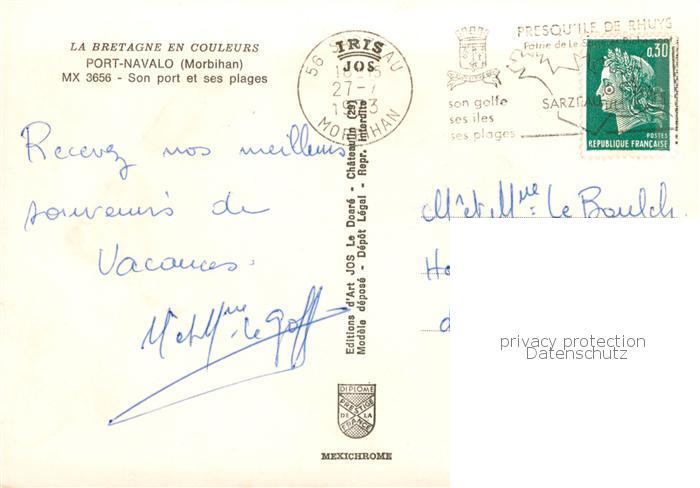 LA BRETAGNE EN COULEURS
PORT-NAVALO (Morbihan)
MX 3656 - Son port et ses plages
IRIS
JOS
56
18-15
27-7
MORBIHAN
PRESQU'ILE DE RHUYS
Patrie de Le
son golfe
ses iles
ses plages
SARZEAU
0,30
POSTES
REPUBLIQUE FRANÇAISE
Recevez nos meilleurs
souvenirs de
Vacances.
M et Mme le Goff
Editions d'Art JOS Le Doaré - Châteaulin (29)
Modèle déposé - Dépôt Légal - Repr. interdite
M. et Mme le Boulch
privacy protection
Datenschutz
DIPLOME
PRESTIGE
DE LA
FRANCE
MEXICHROME